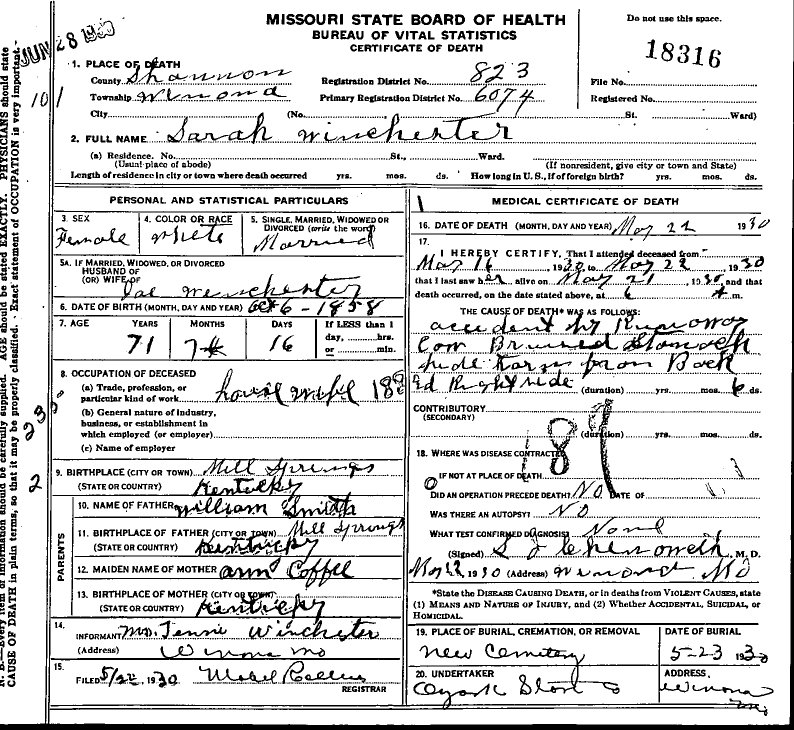 JUN 28 1930
MISSOURI STATE BOARD OF HEALTH
BUREAU OF VITAL STATISTICS
CERTIFICATE OF DEATH
Do not use this space.
18316
1. PLACE OF DEATH
County Shannon Registration District No. 823 File No.
Township Winona Primary Registration District No. 6074 Registered No.
City (No. St. Ward)
2. FULL NAME Sarah Winchester
(a) Residence. No. St., Ward.
(Usual place of abode) (If nonresident, give city or town and State)
Length of residence in city or town where death occurred yrs. mos. ds. How long in U. S., if of foreign birth? yrs. mos. ds.
PERSONAL AND STATISTICAL PARTICULARS
3. SEX 4. COLOR OR RACE 5. SINGLE, MARRIED, WIDOWED OR
DIVORCED (write the word)
Female white Married
5A. IF MARRIED, WIDOWED, OR DIVORCED
HUSBAND OF
(OR) WIFE OF winchester
6. DATE OF BIRTH (MONTH, DAY AND YEAR) Oct 6 - 1858
7. AGE YEARS MONTHS DAYS If LESS than 1
day, hrs.
or min.
71 7 16
8. OCCUPATION OF DECEASED
(a) Trade, profession, or
particular kind of work house wife
(b) General nature of industry,
business, or establishment in
which employed (or employer)
(c) Name of employer
9. BIRTHPLACE (CITY OR TOWN) Mill Springs
(STATE OR COUNTRY) Kentucky
PARENTS
10. NAME OF FATHER William Smith
11. BIRTHPLACE OF FATHER (CITY OR TOWN) Mill Springs
(STATE OR COUNTRY) Kentucky
12. MAIDEN NAME OF MOTHER Ann Coffel
13. BIRTHPLACE OF MOTHER (CITY OR TOWN)
(STATE OR COUNTRY) Kentucky
14.
INFORMANT Mrs. Jennie Winchester
(Address) Winona Mo
15.
FILED 5/22, 1930 Mabel
REGISTRAR
MEDICAL CERTIFICATE OF DEATH
16. DATE OF DEATH (MONTH, DAY AND YEAR) May 22 1930
17.
I HEREBY CERTIFY, That I attended deceased from
May 16, 1930, to May 22, 1930
that I last saw her alive on May 21, 1930, and that
death occurred, on the date stated above, at 6 A m.
THE CAUSE OF DEATH* WAS AS FOLLOWS:
accident by Runoway
Cow Bruised Stomach
side torn from Back
Right side (duration) yrs. mos. 6 ds.
CONTRIBUTORY
(SECONDARY)
(duration) yrs. mos. ds.
18. WHERE WAS DISEASE CONTRACTED
IF NOT AT PLACE OF DEATH
DID AN OPERATION PRECEDE DEATH? NO DATE OF
WAS THERE AN AUTOPSY? NO
WHAT TEST CONFIRMED DIAGNOSIS? None
(Signed) S J Chenoweth, M. D.
May 22 1930 (Address) Winona Mo
*State the DISEASE CAUSING DEATH, or in deaths from VIOLENT CAUSES, state
(1) MEANS AND NATURE OF INJURY, and (2) Whether ACCIDENTAL, SUICIDAL, or
HOMICIDAL.
19. PLACE OF BURIAL, CREMATION, OR REMOVAL DATE OF BURIAL
New Cemetery 5-23 1930
20. UNDERTAKER ADDRESS,
Ozark Store Co Winona
Mo.
N. B.—Every item of information should be carefully supplied. AGE should be stated EXACTLY. PHYSICIANS should state
CAUSE OF DEATH in plain terms, so that it may be properly classified. Exact statement of OCCUPATION is very important.